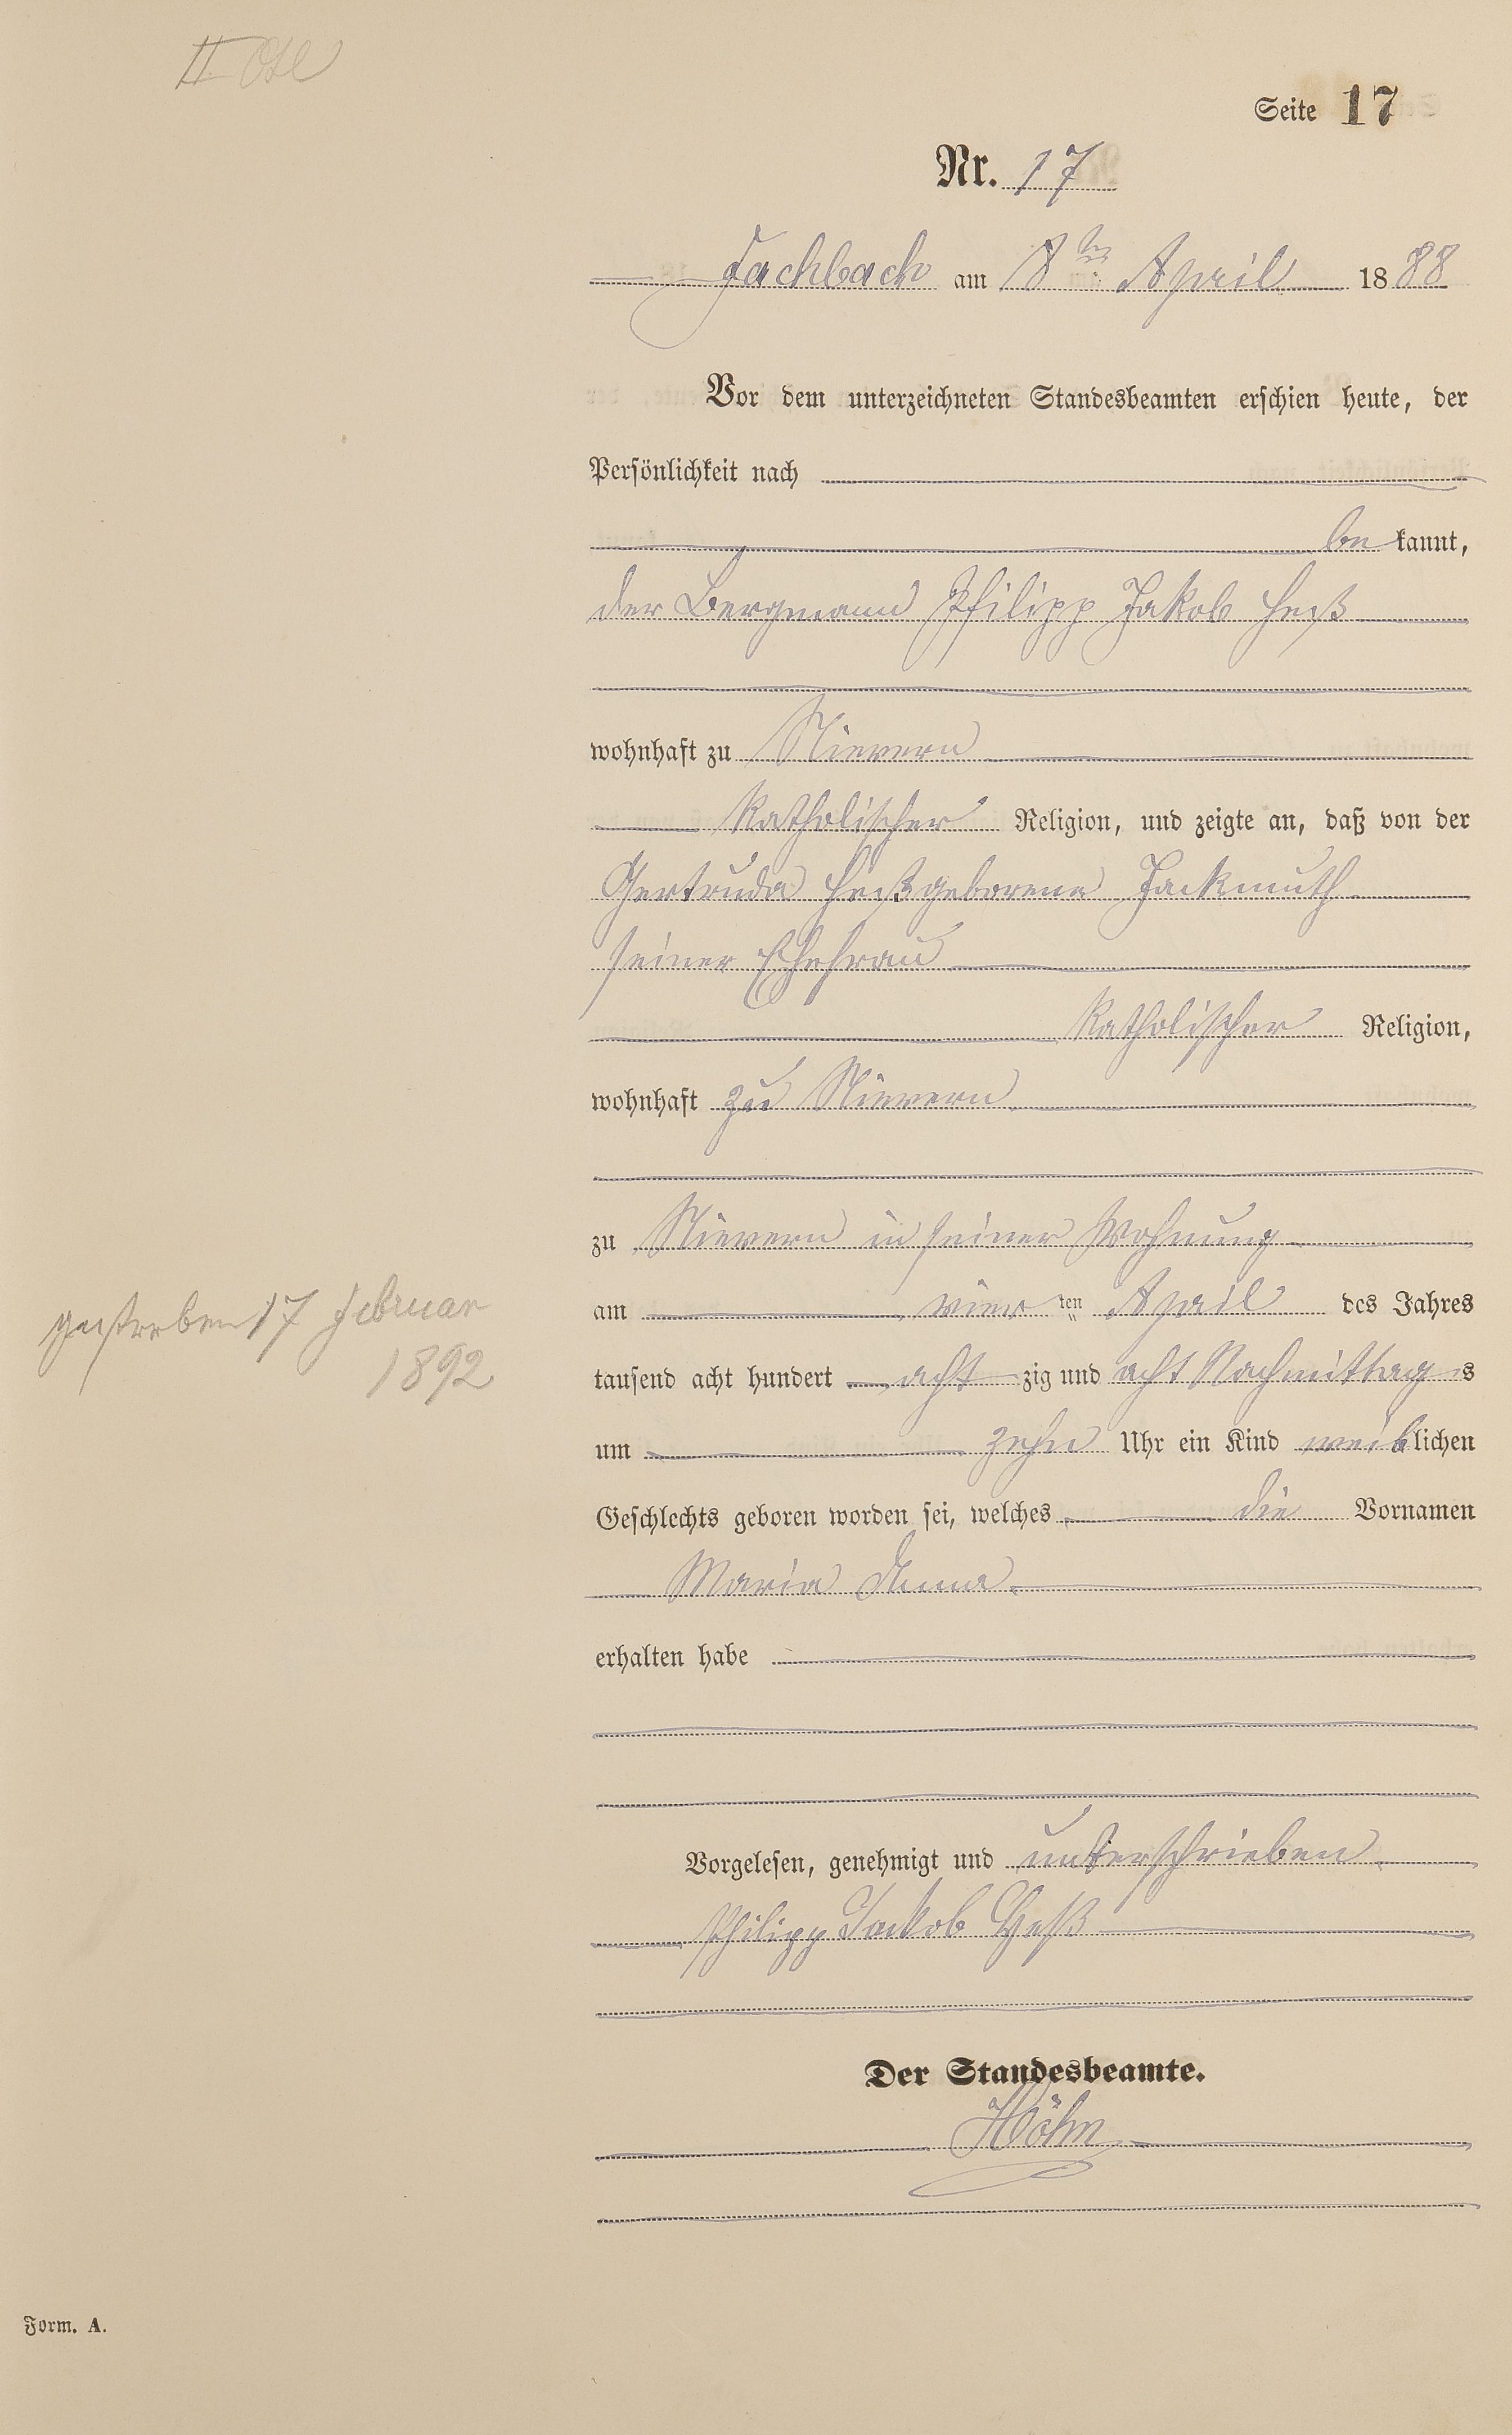 Seite 17
Nr. 17
Fachbach am 8ten April 1888
Vor dem unterzeichneten Standesbeamten erschien heute, der
Persönlichkeit nach
be kannt,
der Bergmann Philipp Jakob Heß
wohnhaft zu Nievern
katholischer Religion, und zeigte an, daß von der
Gertruda Heß geborene Jackmuth
seiner Ehefrau
katholischer Religion,
wohnhaft zu Nievern
zu Nievern in seiner Wohnung
am vier ten April des Jahres
tausend acht hundert acht zig und acht Nachmittags
um zehn Uhr ein Kind weiblichen
Geschlechts geboren worden sei, welches die Vornamen
Maria Anna
erhalten habe
gestorben 17 Februar
1892
Vorgelesen, genehmigt und unterschrieben
Philipp Jackob Heß
Der Standesbeamte.
Höhn
Form. A.